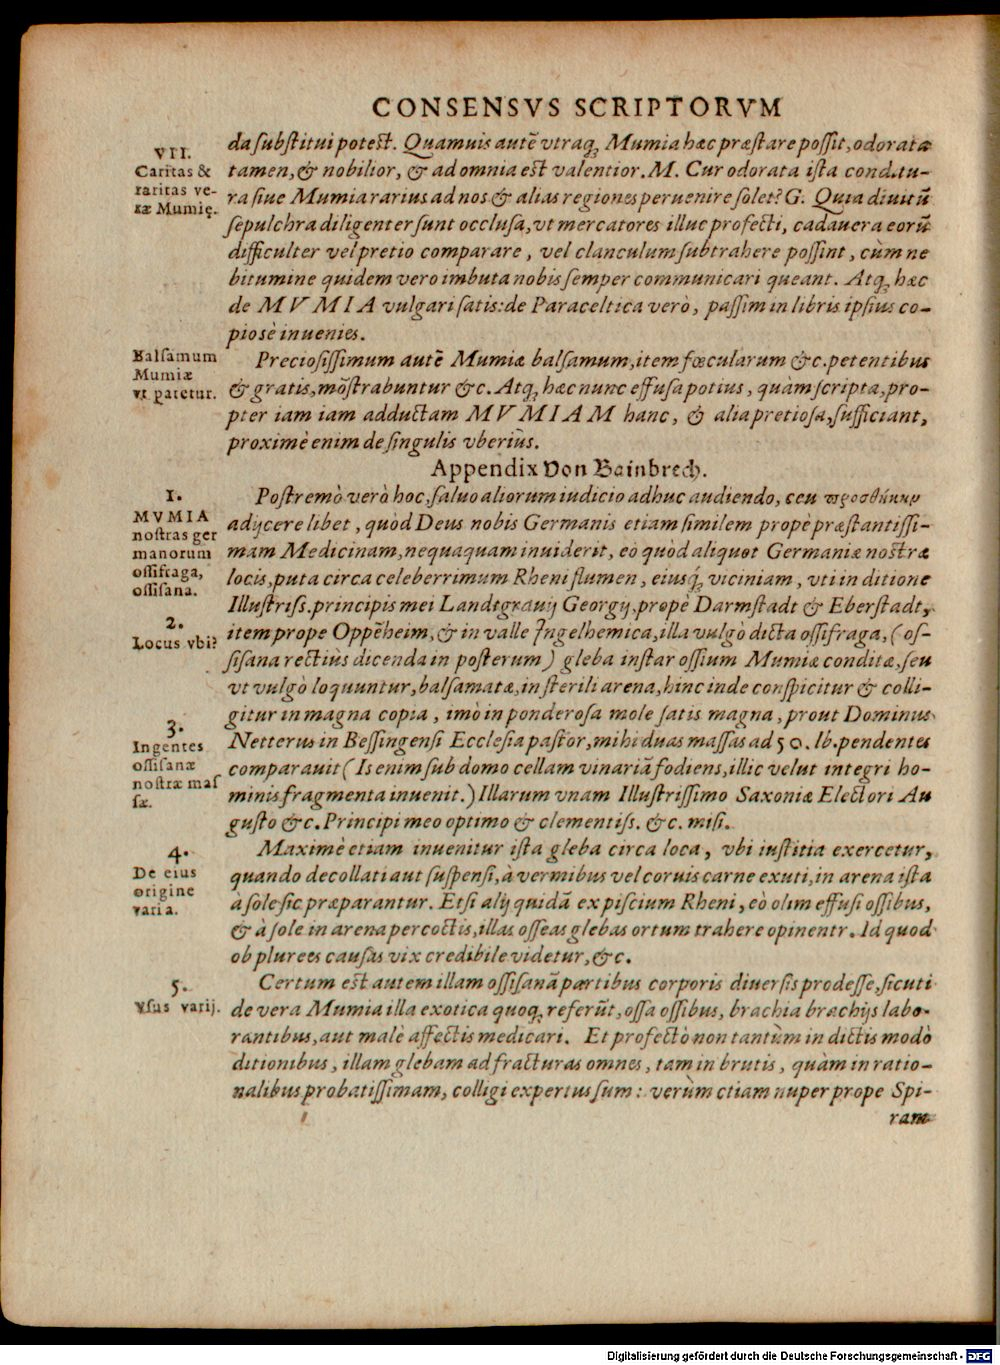 CONSENSVS SCRIPTORVM
VII.
Caritas &
raritas ve-
ræ Mumię.
da substitui potest. Quamuis autē vtraq; Mumia hæc præstare possit, odorata
tamen, & nobilior, & ad omnia est valentior. M. Cur odorata ista conditu-
ra siue Mumia rarius ad nos & alias regiones peruenire solet? G. Quia diuitū
sepulchra diligenter sunt occlusa, vt mercatores illuc profecti, cadauera eorū
difficulter vel pretio comparare, vel clanculum subtrahere possint, cùm ne
bitumine quidem vero imbuta nobis semper communicari queant. Atq; hæc
de MVMIA vulgari satis: de Paraceltica verò, passim in libris ipsius co-
piosè inuenies.
Balsamum
Mumiæ
vt paretur.
Preciosissimum autē Mumiæ balsamum, item fœcularum &c. petentibus
& gratis, mōstrabuntur &c. Atq; hæc nunc effusa potius, quàm scripta, pro-
pter iam iam adductam MVMIAM hanc, & alia pretiosa, sufficiant,
proximè enim de singulis vberius.
Appendix Von Bainbrech.
1.
MVMIA
nostras ger
manorum
ossifraga,
ossisana.
2.
Locus vbi?
3.
Ingentes
ossisanæ
nostræ mas
sæ.
Postremò verò hoc, saluo aliorum iudicio adhuc audiendo, ceu προσθήκην
adijcere libet, quòd Deus nobis Germanis etiam similem propè præstantissi-
mam Medicinam, nequaquam inuiderit, eò quòd aliquot Germaniæ nostræ
locis, puta circa celeberrimum Rheni flumen, eiusq́; viciniam, vti in ditione
Illustriss. principis mei Landtgrauij Georgij, propè Darmstadt & Eberstadt,
item prope Oppēheim, & in valle Ingelhemica, illa vulgò dicta ossifraga, (os-
sisana rectiùs dicenda in posterum) gleba instar ossium Mumiæ conditæ, seu
vt vulgò loquuntur, balsamatæ, in sterili arena, hinc inde conspicitur & colli-
gitur in magna copia, imò in ponderosa mole satis magna, prout Dominus
Netterus in Bessingensi Ecclesia pastor, mihi duas massas ad 50. lb. pendentes
comparauit (Is enim sub domo cellam vinariā fodiens, illic velut integri ho-
minis fragmenta inuenit.) Illarum vnam Illustrissimo Saxoniæ Electori Au
gusto &c. Principi meo optimo & clementiss. &c. misi.
4.
De eius
origine
varia.
Maximè etiam inuenitur ista gleba circa loca, vbi iustitia exercetur,
quando decollati aut suspensi, à vermibus vel coruis carne exuti, in arena ista
à sole sic præparantur. Etsi alij quidā ex piscium Rheni, eò olim effusi ossibus,
& à sole in arena percoctis, illas osseas glebas ortum trahere opinentr. Id quod
ob plures causas vix credibile videtur, &c.
5.
Vsus varij.
Certum est autem illam ossisanā partibus corporis diuersis prodesse, sicuti
de vera Mumia illa exotica quoq; referūt, ossa ossibus, brachia brachijs labo-
rantibus, aut malè affectis medicari. Et profectò non tantùm in dictis modò
ditionibus, illam glebam ad fracturas omnes, tam in brutis, quàm in ratio-
nalibus probatissimam, colligi expertus sum: verùm etiam nuper prope Spi-
ram
Digitalisierung gefördert durch die Deutsche Forschungsgemeinschaft - DFG